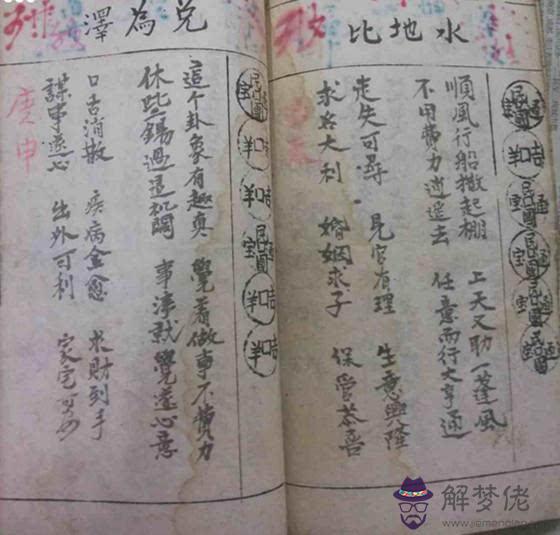 水地比
順風行船撒起棚 上天又助一蓬風
不用費力逍遥去 任意而行大亨通
走失可尋 見官有理 生意興隆
求名大利 婚姻求子 保管恭喜
兌為澤
這个卦象有趣真 覺着做事不費力
休些錫過這机関 事淨就覺遂心意
口舌消散 疾病全愈 求財到手
謀事遂心 出外可利 家宅
庚申
解梦佬